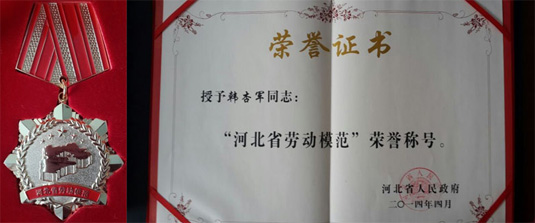 荣誉证书
授予韩杏军同志：
“河北省劳动模范”荣誉称号。
河北省人民政府
二〇一四年四月
河北省劳动模范